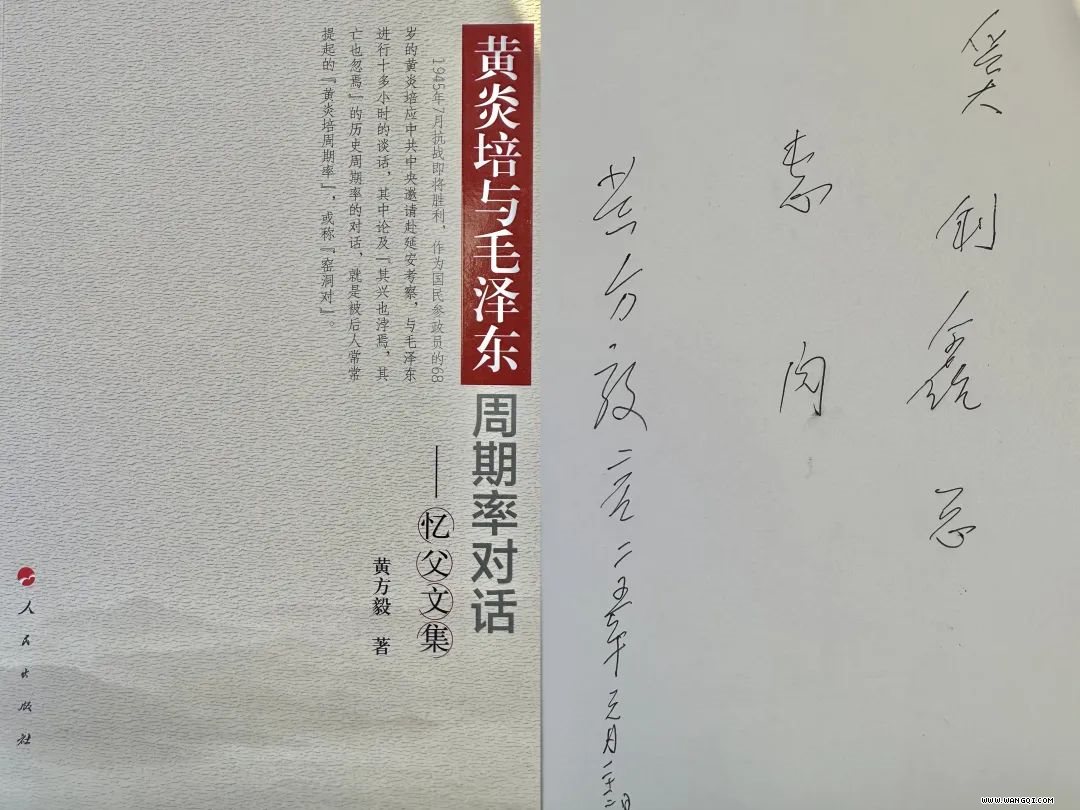 黄炎培与毛泽东
周期率对话
——忆父文集
黄方毅 著
1945年7月抗战即将胜利，作为国民参政员的68
岁的黄炎培应中共中央邀请赴延安考察，与毛泽东
进行十多小时的谈话，其中论及『其兴也浡焉，其
亡也忽焉』的历史周期率的对话，就是被后人常常
提起的『黄炎培周期率』，或称『窑洞对』。
人民出版社
鑫总
惠阅
黄方毅 二零二五年元月
www.wangqi.com